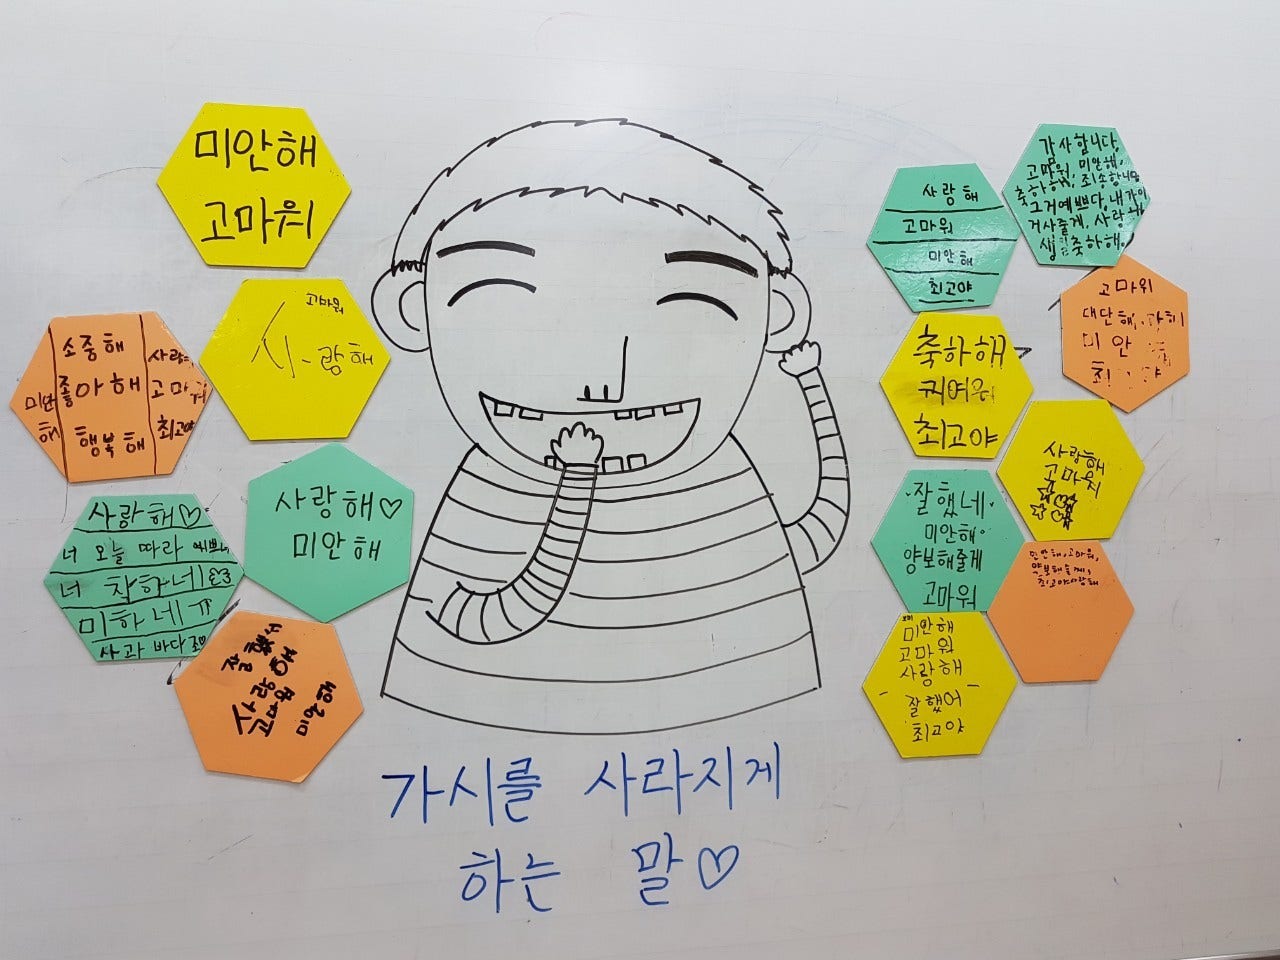 미안해
고마워
고마워
사랑해
소중해
좋아해
행복해
미안
해
사랑해
고마워
최고야
사랑해♡
미안해
사랑해♡
너 오늘 따라 예쁘네
너 착하네!
미하네 ㅠ
사과 받다죠♡
사랑해
고마워
미안해
사랑해
고마워
미안해
최고야
가사합니다,
고마워, 미안해,
축하해, 죄송합니다
그거예쁘다, 내가이
거사줄게, 사랑해
생일축하해,
고마워
대단해,
미안
최고야
축하해
귀여워
최고야
사랑해
고마워
잘했네
미안해
양보해줄게
고마워
미안해, 고마워,
양보해줄게,
최고야사랑해
미안해
고마워
사랑해
잘했어
최고야
가시를 사라지게
하는 말♡